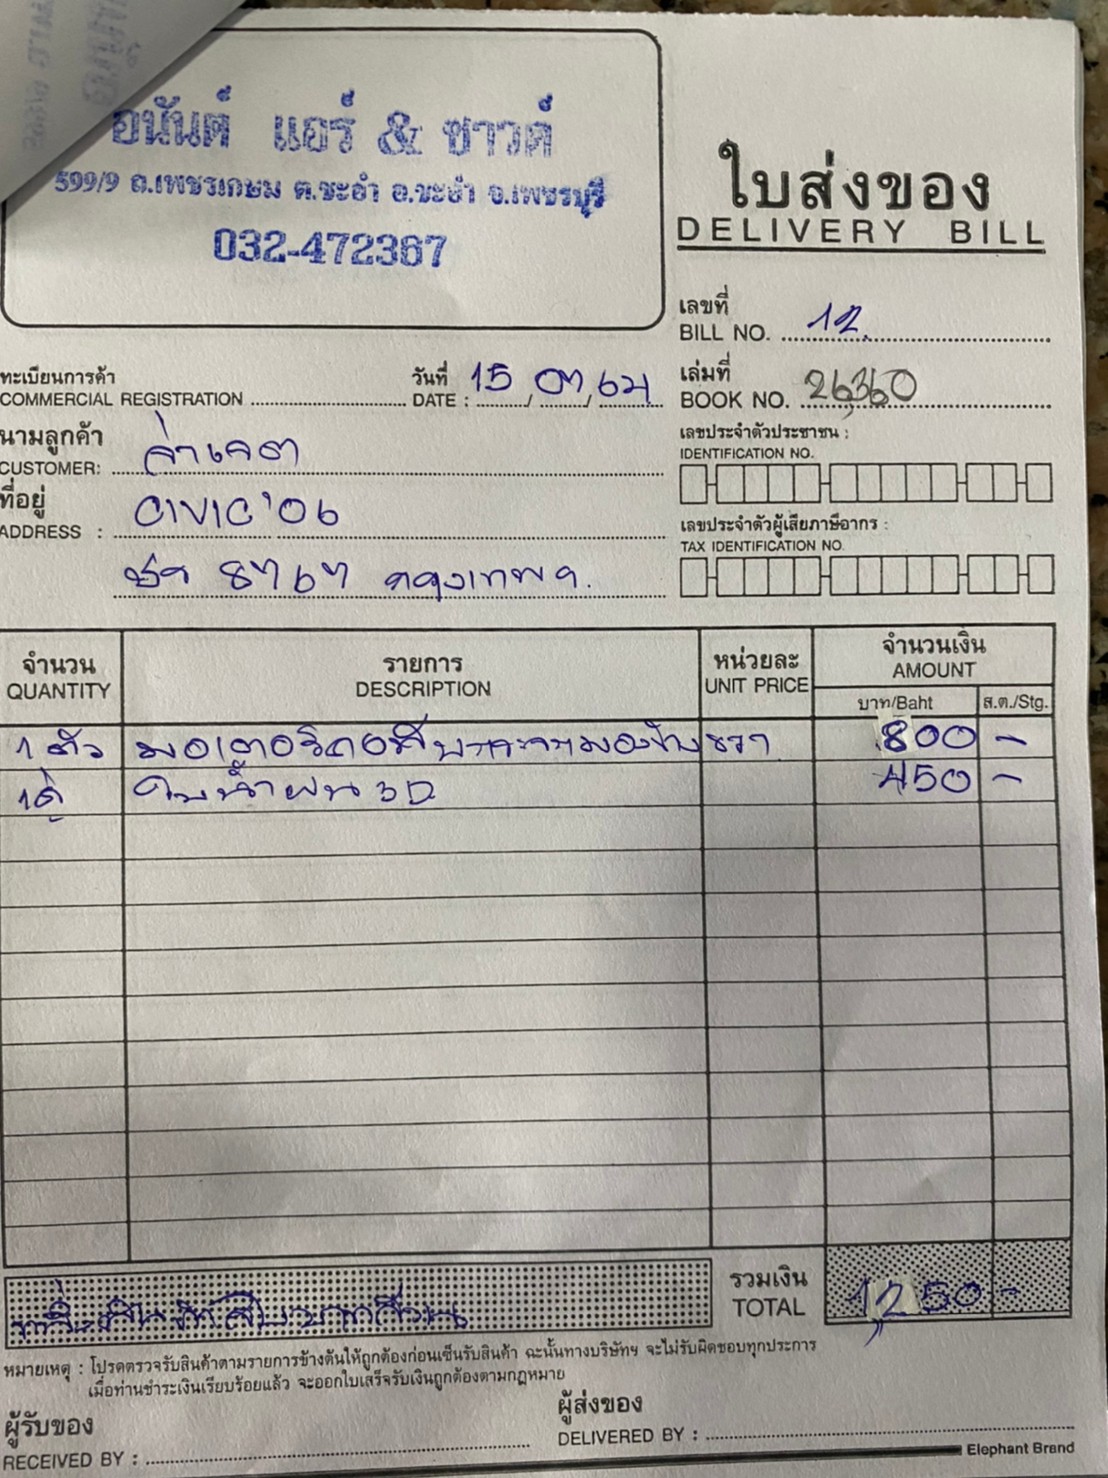 อนันต์ แอร์ & ซาวด์
599/9 ถ.เพชรเกษม ต.ชะอำ อ.ชะอำ จ.เพชรบุรี
032-472367
ใบส่งของ
DELIVERY BILL
เลขที่
BILL NO. 12
ทะเบียนการค้า
COMMERCIAL REGISTRATION
วันที่
DATE : 15 / 07 / 64
เล่มที่
BOOK NO. 26,360
นามลูกค้า
CUSTOMER:
เลขประจำตัวประชาชน :
IDENTIFICATION NO.
ที่อยู่
ADDRESS : CIVIC'06
8767 กรุงเทพฯ
เลขประจำตัวผู้เสียภาษีอากร :
TAX IDENTIFICATION NO.
จำนวน
QUANTITY
รายการ
DESCRIPTION
หน่วยละ
UNIT PRICE
จำนวนเงิน
AMOUNT
บาท/Baht
ส.ต./Stg.
1 ตัว มอเตอร์ ขวา 800 -
1คู่ ใบน้ำฝน 3D 450 -
รวมเงิน
TOTAL 1,250 -
หมายเหตุ : โปรดตรวจรับสินค้าตามรายการข้างต้นให้ถูกต้องก่อนเซ็นรับสินค้า ฉะนั้นทางบริษัทฯ จะไม่รับผิดชอบทุกประการ
เมื่อท่านชำระเงินเรียบร้อยแล้ว จะออกใบเสร็จรับเงินถูกต้องตามกฎหมาย
ผู้รับของ
RECEIVED BY :
ผู้ส่งของ
DELIVERED BY :
Elephant Brand